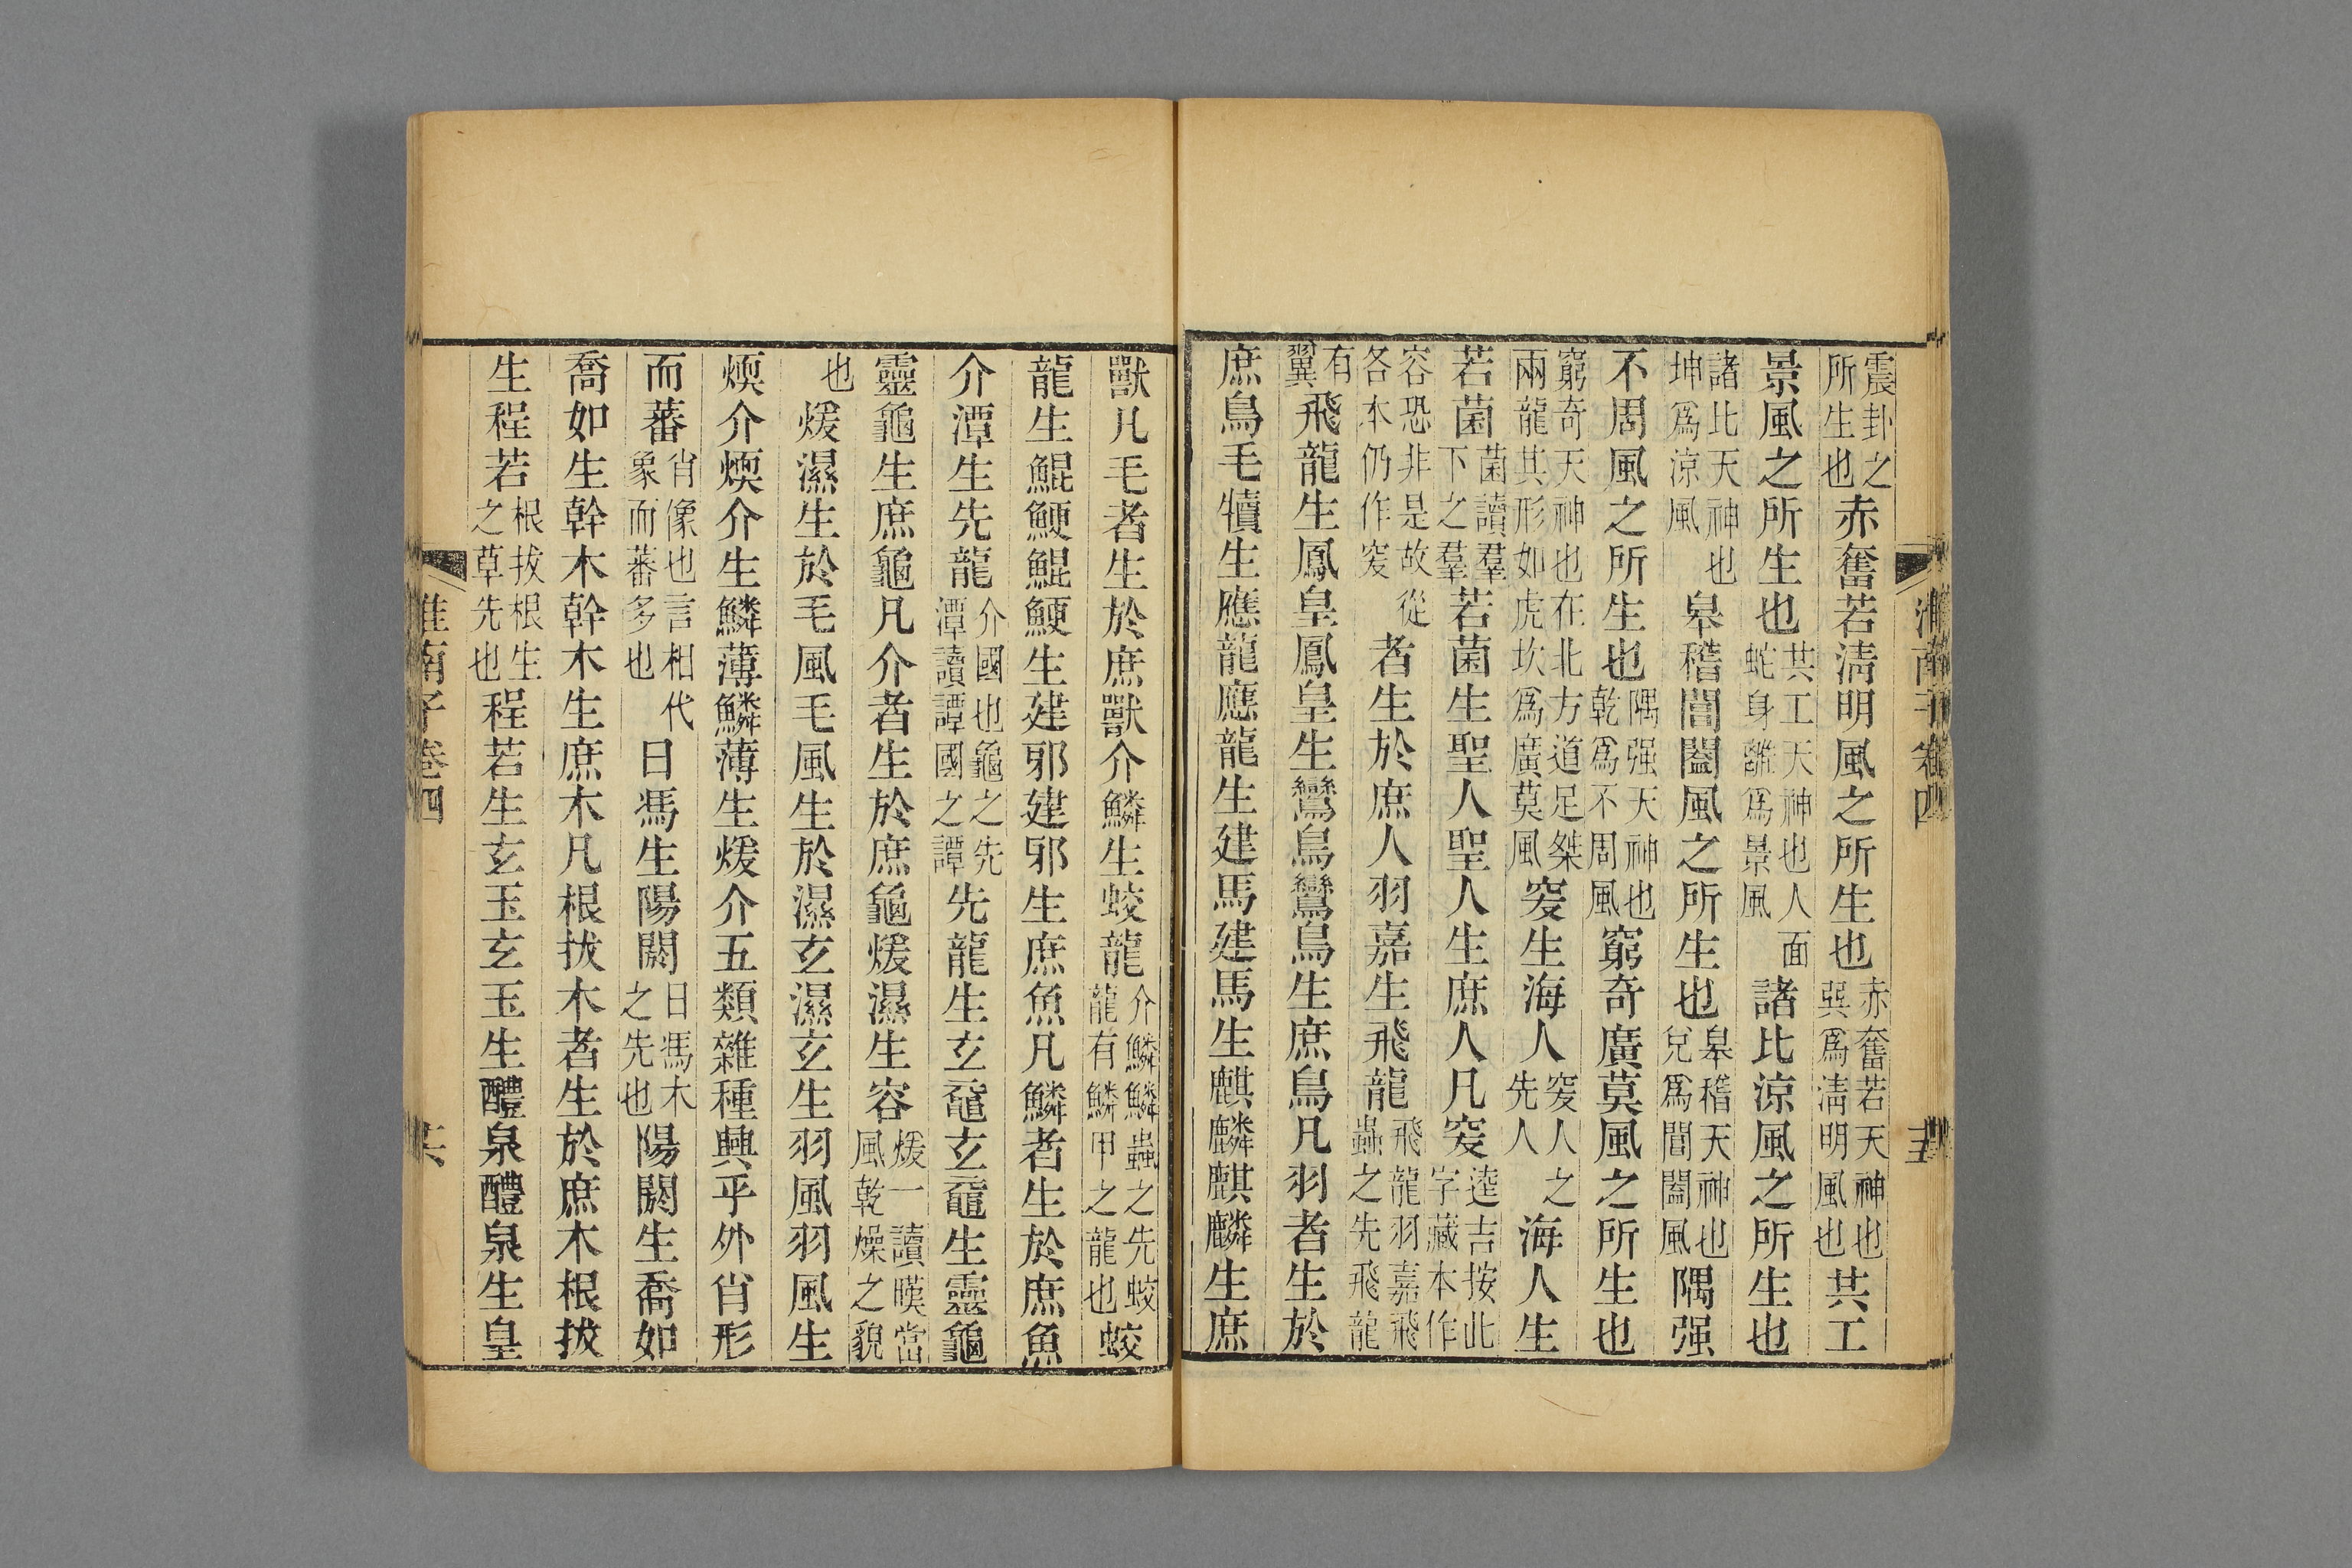 淮南子卷四
震卦之所生也赤奮若淸明風之所生也赤奮若天神也巽爲淸明風也共工
景風之所生也共工天神也人面蛇身離爲景風諸比涼風之所生也
諸比天神也坤爲涼風皋稽閶闔風之所生也皋稽天神也兌爲閶闔風隅强
不周風之所生也隅强天神也乾爲不周風窮奇廣莫風之所生也
窮奇天神也在北方道足椉兩龍其形如虎坎爲廣莫風窔生海人窔人之先人海人生
若菌菌讀羣下之羣若菌生聖人聖人生庶人凡窔逵吉按此字藏本作
容恐非是故從各本仍作窔者生於庶人羽嘉生飛龍飛龍羽嘉飛蟲之先飛龍
有翼飛龍生鳳皇鳳皇生鸞鳥鸞鳥生庶鳥凡羽者生於
庶鳥毛犢生應龍應龍生建馬建馬生麒麟麒麟生庶
獸凡毛者生於庶獸介鱗生蛟龍介鱗鱗蟲之先蛟龍有鱗甲之龍也蛟
龍生鯤鯁鯤鯁生建邪建邪生庶魚凡鱗者生於庶魚
介潭生先龍介國也龜之先潭讀譚國之譚先龍生玄黿玄黿生靈龜
靈龜生庶龜凡介者生於庶龜煖濕生容煖一讀暵當風乾燥之貌
也煖濕生於毛風毛風生於濕玄濕玄生羽風羽風生
煗介煗介生鱗薄鱗薄生煖介五類雜種興乎外肖形
而蕃肖像也言相代象而蕃多也日馮生陽閼日馮木之先也陽閼生喬如
喬如生幹木幹木生庶木凡根拔木者生於庶木根拔
生程若根拔根生之草先也程若生玄玉玄玉生醴泉醴泉生皇
淮南子卷四